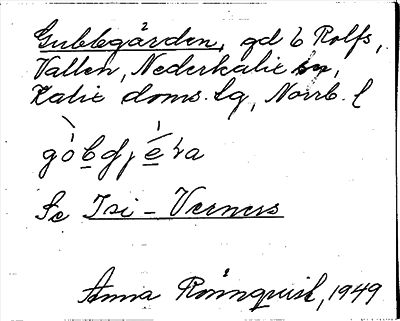 Gubbgården, gd i Rolfs,
Vallen, Nederkalix sn,
Kalix doms. lg, Norrb. l
Se Isi-Verners
Anna Rönnquist, 1949